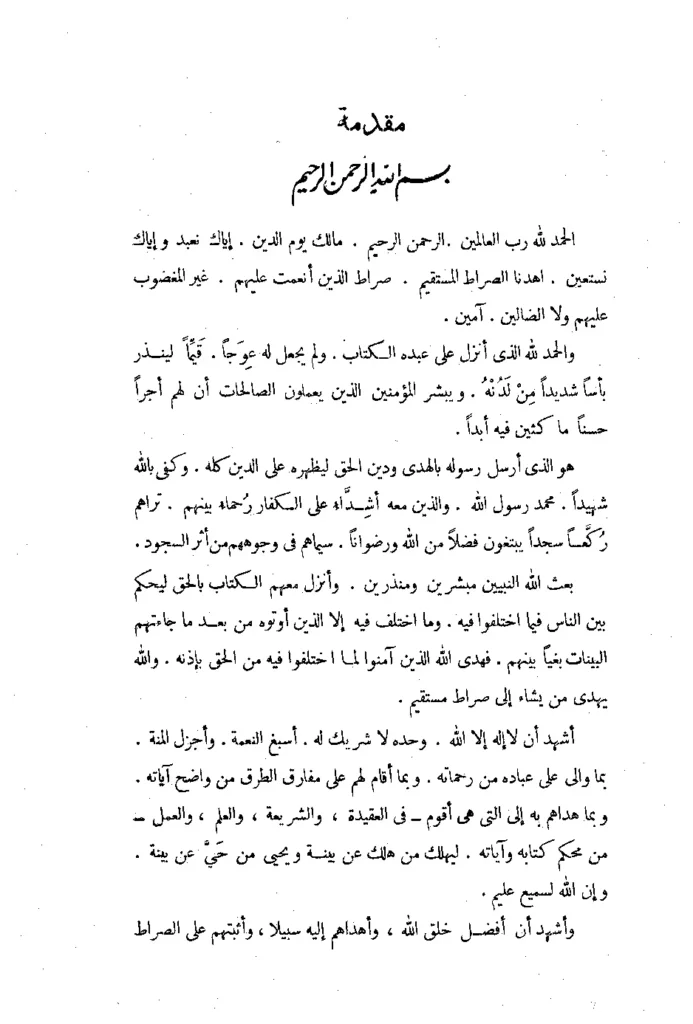 مقدمة
بسم الله الرحمن الرحيم
الحمد لله رب العالمين . الرحمن الرحيم . مالك يوم الدين . إياك نعبد و إياك
نستعين . اهدنا الصراط المستقيم . صراط الذين أنعمت عليهم . غير المغضوب
عليهم ولا الضالين . آمين .
والحمد لله الذى أنزل على عبده الكتاب . ولم يجعل له عِوَجاً . قَيِّماً لينذر
بأساً شديداً مِنْ لَدُنْهُ . ويبشر المؤمنين الذين يعملون الصالحات أن لهم أجراً
حسناً ما كثين فيه أبداً .
هو الذى أرسل رسوله بالهدى ودين الحق ليظهره على الدين كله . وكفى بالله
شهيداً . محمد رسول الله . والذين معه أشِدَّاء على الكفار رُحماء بينهم . تراهم
رُكَّعاً سجداً يبتغون فضلاً من الله ورضواناً . سيماهم فى وجوههم من أثر السجود .
بعث الله النبيين مبشرين ومنذرين . وأنزل معهم الكتاب بالحق ليحكم
بين الناس فيما اختلفوا فيه . وما اختلف فيه إلا الذين أوتوه من بعد ما جاءتهم
البينات بغياً بينهم . فهدى الله الذين آمنوا لما اختلفوا فيه من الحق بإذنه . والله
يهدى من يشاء إلى صراط مستقيم .
أشهد أن لا إله إلا الله . وحده لا شريك له . أسبغ النعمة . وأجزل المنة .
بما والى على عباده من رحماته . وبما أقام لهم على مفارق الطرق من واضح آياته .
وبما هداهم به إلى التى هى أقوم – فى العقيدة ، والشريعة ، والعلم ، والعمل –
من محكم كتابه وآياته . ليهلك من هلك عن بينة ويحيى من حَيَّ عن بينة .
وإن الله لسميع عليم .
وأشهد أن أفضل خلق الله ، وأهداهم إليه سبيلا ، وأثبتهم على الصراط